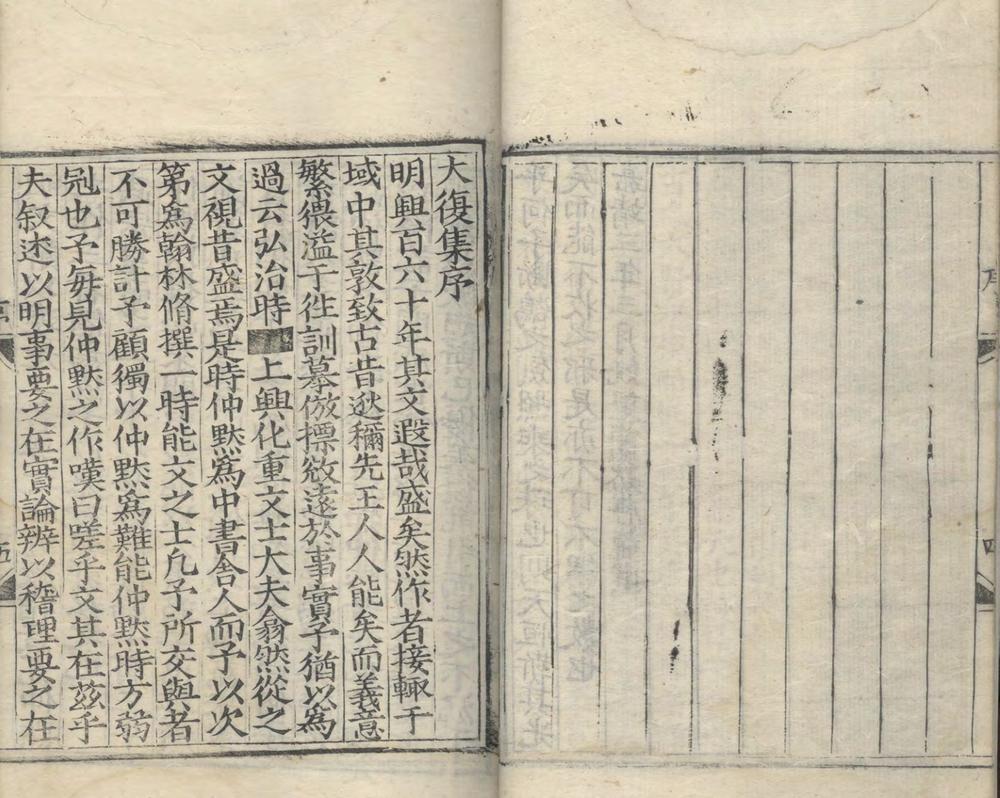 序
四
大復集序
明興百六十年其文遐哉盛矣然作者接輙于
域中其敦致古昔逖穪先王人人能矣而義意
繁猥溢于徃訓摹倣摽敚遠於事實予猶以為
過云弘治時上興化重文士大夫翕然從之
文視昔盛焉是時仲黙為中書舎人而予以次
第為翰林脩撰一時能文之士凢予所交與者
不可勝計予顧獨以仲黙為難能仲黙時方弱
冠也予每見仲黙之作嘆曰嗟乎文其在茲乎
夫叙述以明事要之在實論辨以稽理要之在
五